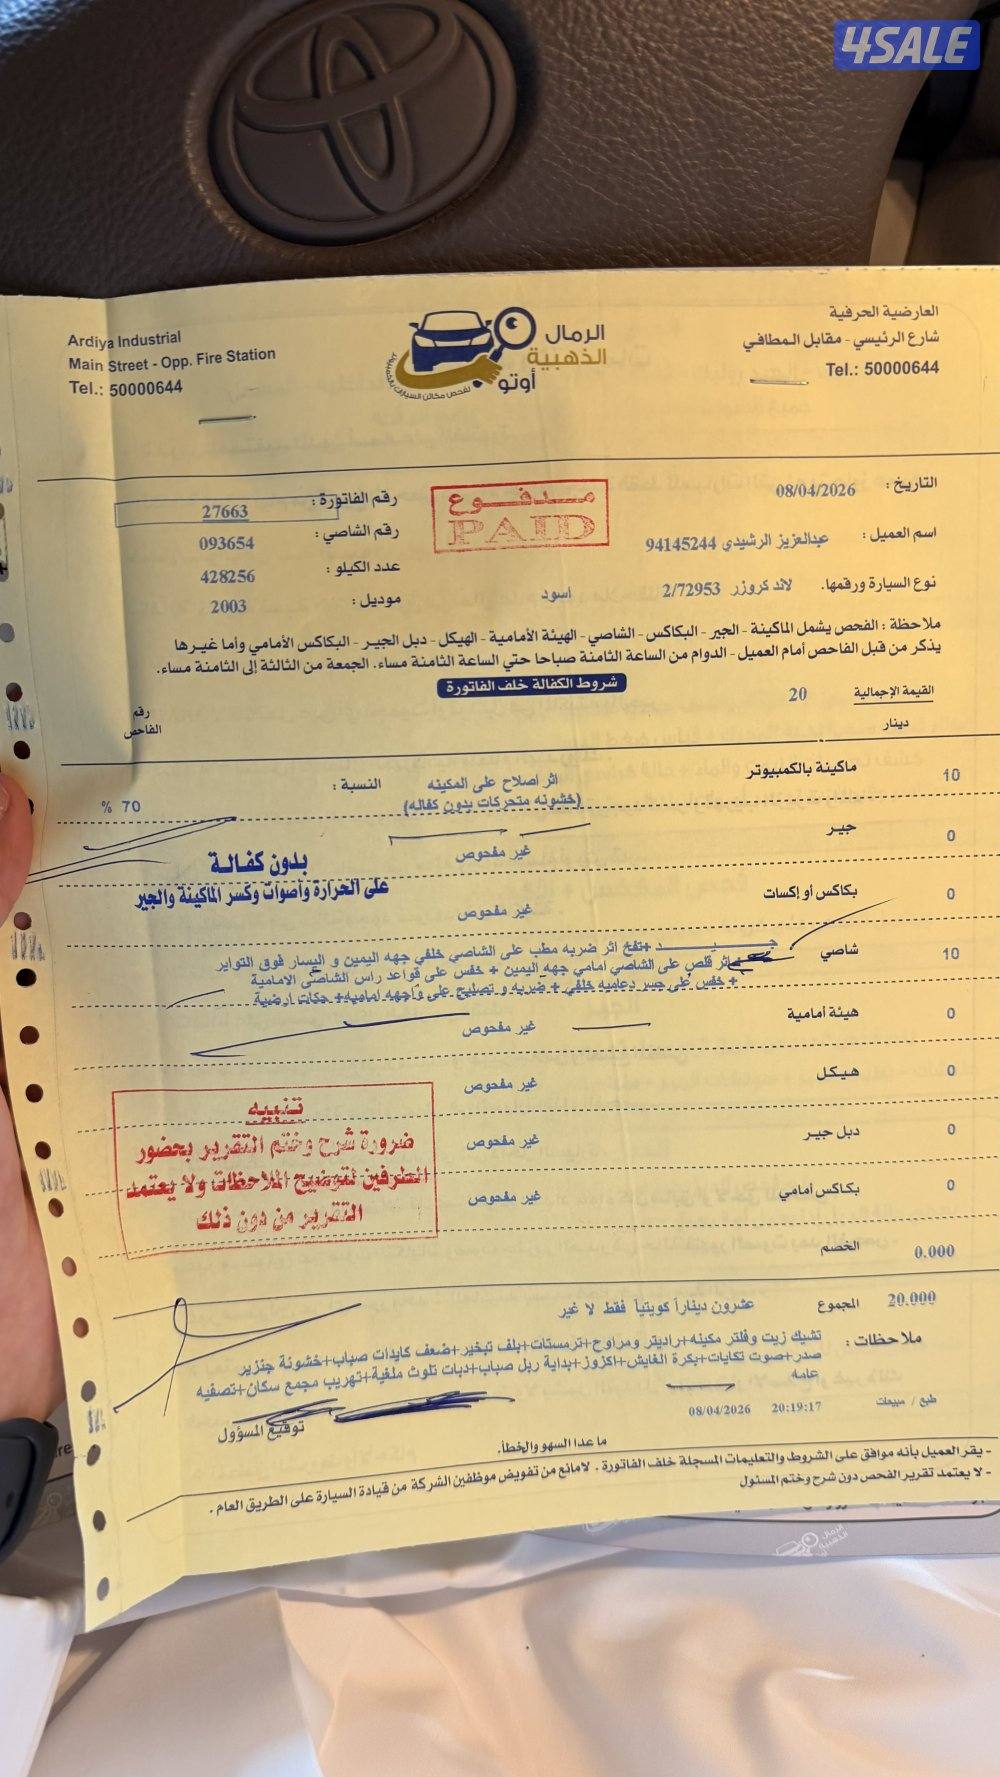 4SALE
العارضية الحرفية
شارع الرئيسي - مقابل المطافي
Tel.: 50000644
الرمال
الذهبية
أوتو
لفحص مكائن السيارات بالكمبيوتر
Ardiya Industrial
Main Street - Opp. Fire Station
Tel.: 50000644
التاريخ : 08/04/2026
مدفوع
PAID
رقم الفاتورة : 27663
اسم العميل : عبدالعزيز الرشيدي 94145244
رقم الشاصي : 093654
نوع السيارة ورقمها. لاند كروزر 2/72953 اسود
عدد الكيلو : 428256
موديل : 2003
ملاحظة : الفحص يشمل الماكينة - الجير - البكاكس - الشاصي - الهيئة الأمامية - الهيكل - دبل الجير - البكاكس الأمامي وأما غيرها
يذكر من قبل الفاحص أمام العميل - الدوام من الساعة الثامنة صباحا حتي الساعة الثامنة مساء. الجمعة من الثالثة إلى الثامنة مساء.
شروط الكفالة خلف الفاتورة
القيمة الإجمالية 20
دينار
رقم
الفاحص
10 ماكينة بالكمبيوتر اثر اصلاح على المكينه النسبة : 70 %
(خشونه متحركات بدون كفاله)
0 جير غير مفحوص
بدون كفالة
على الحرارة وأصوات وكسر الماكينة والجير
0 بكاكس أو إكسات غير مفحوص
10 شاصي جيد +تفخ اثر ضربه مطب على الشاصي خلفي جهه اليمين و اليسار فوق التواير
+اثر قلص على الشاصي امامي جهه اليمين + خفس على قواعد راس الشاصي الامامية
+ خفس على جسر دعاميه خلفي + ضربه و تصليح على واجهه اماميه+ حكات ارضية
0 هيئة أمامية غير مفحوص
0 هيكل غير مفحوص
0 دبل جير غير مفحوص
0 بكاكس أمامي غير مفحوص
تنبيه
ضرورة شرح وختم التقرير بحضور
الطرفين لتوضيح الملاحظات ولا يعتمد
التقرير من دون ذلك
0.000 الخصم
20.000 المجموع عشرون ديناراً كويتياً فقط لا غير
ملاحظات : تشيك زيت وفلتر مكينه+راديتر ومراوح+ترمستات+بلف تبخير+ضعف كايدات صباب+خشونة جنزير
صدر+صوت تكايات+بكرة القايش+اكزوز+بداية ربل صباب+دبات تلوث ملغية+تهريب مجمع سكان+تصفيه
عامه
طبع / مبيعات 20:19:17 08/04/2026
توقيع المسؤول
ما عدا السهو والخطأ.
- يقر العميل بأنه موافق على الشروط والتعليمات المسجلة خلف الفاتورة . لامانع من تفويض موظفين الشركة من قيادة السيارة على الطريق العام .
- لا يعتمد تقرير الفحص دون شرح وختم المسئول